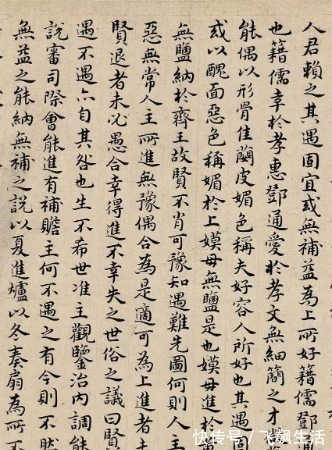 人君賴之其遇固宜或無補益為上所好籍儒鄧通
也籍儒幸於孝惠鄧通愛於孝文無細簡之才
能偶以形骨佳皮媚色稱夫好容人所好也其遇固
或以醜面惡色稱媚於上嫫母無鹽是也嫫母進於
無鹽納於齊王故賢不肖可豫知遇難先圖何則人主
惡無常人主所進無豫偶合為是適可為上進者未
賢退者未必愚合幸得進不幸失之世俗之議曰賢
遇不遇亦自其咎也生不希世准主觀鑒治內調能
說審司際會能進有補贍主何不遇之有今則不然
無益之能納無補之說以夏進爐以冬奏扇為所不
快传号/飞飙生活